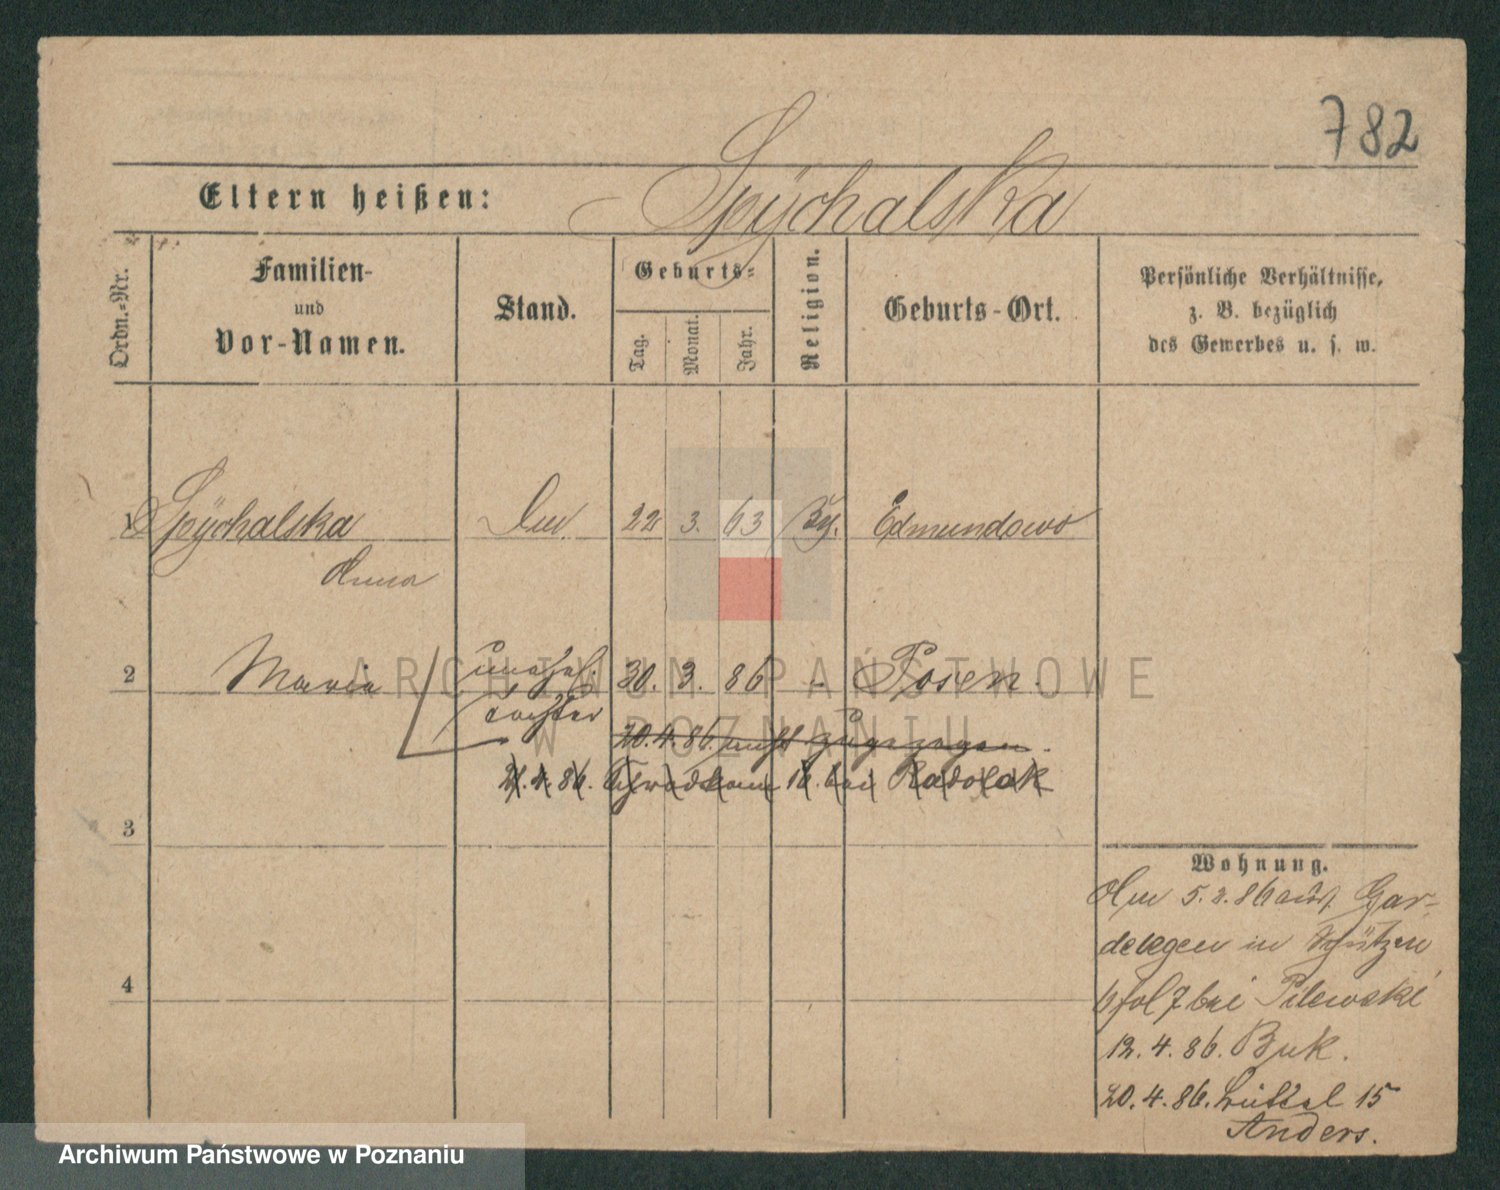 782
Eltern heißen: Spÿchalska
Ordn.-Nr.
Familien-
und
Vor-Namen.
Stand.
Geburts-
Tag.
Monat.
Jahr.
Religion.
Geburts-Ort.
Persönliche Verhältnisse,
z. B. bezüglich
des Gewerbes u. s. w.
1 Spÿchalska 22 3. 63 Edmundowo
Anna
2 Maria unehel. 30. 3. 86 - Posen.
Tochter
20.4.86. nicht zugezogen.
21.4.86. 16. bei Radolak
3
4
Wohnung.
Am 5.2.86 aus Gar-
delegen in Schützen
7 bei Pilewski
12.4.86. Buk.
20.4.86. 15
Anders.
ARCHIWUM PAŃSTWOWE
W POZNANIU
Archiwum Państwowe w Poznaniu